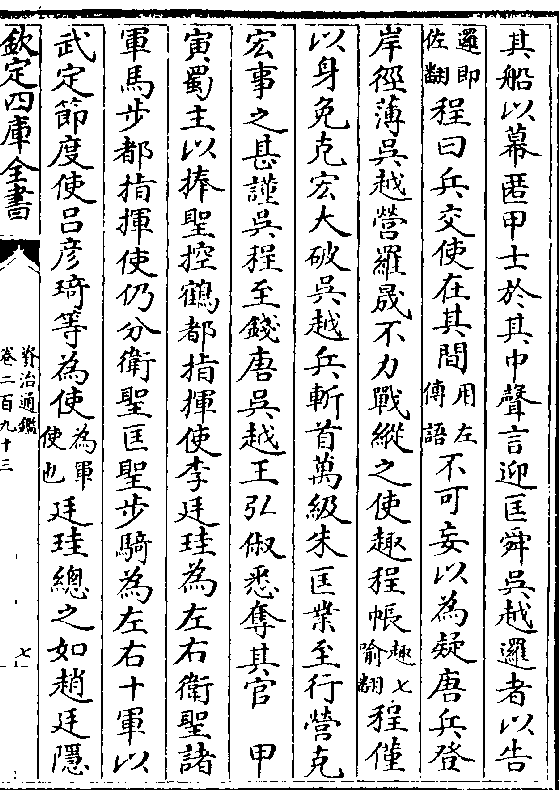 其船以幕匿甲士於其中聲言迎匡舜吳越邏者以告
邏即佐翻程曰兵交使在其間用左傳語不可妄以為疑唐兵登
岸徑薄吳越營羅晟不力戰縱之使趣程帳趣七喻翻程僅
以身免克宏大破吳越兵斬首萬級朱匡業至行營克
宏事之甚謹吳程至錢唐吳越王弘俶悉奪其官 甲
寅蜀主以捧聖控鶴都指揮使李廷珪為左右衛聖諸
軍馬步都指揮使仍分衛聖匡聖步騎為左右十軍以
武定節度使呂彥琦等為使為軍使也廷珪總之如趙廷隱
欽定四庫全書
資治通鑑
卷二百九十三
七